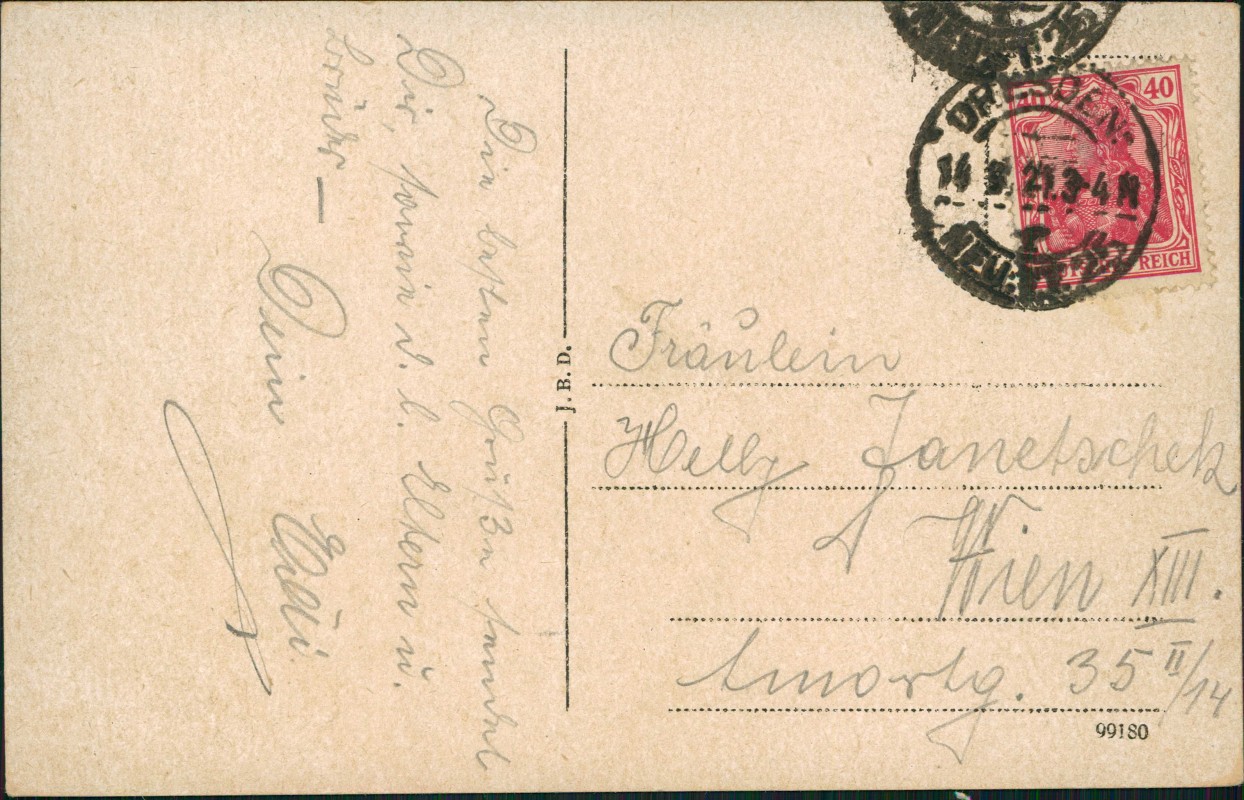 Die besten Grüße sendet
Dir, sowie d. l. Eltern u.
Brüder —
Dein
Edäi
J.B.D.
DRESDEN-
14 21. 3-4 N
NEUST. 25
40
REICH
Fräulein
Helly Janetschek
Wien XIII.
35 II/14
99180